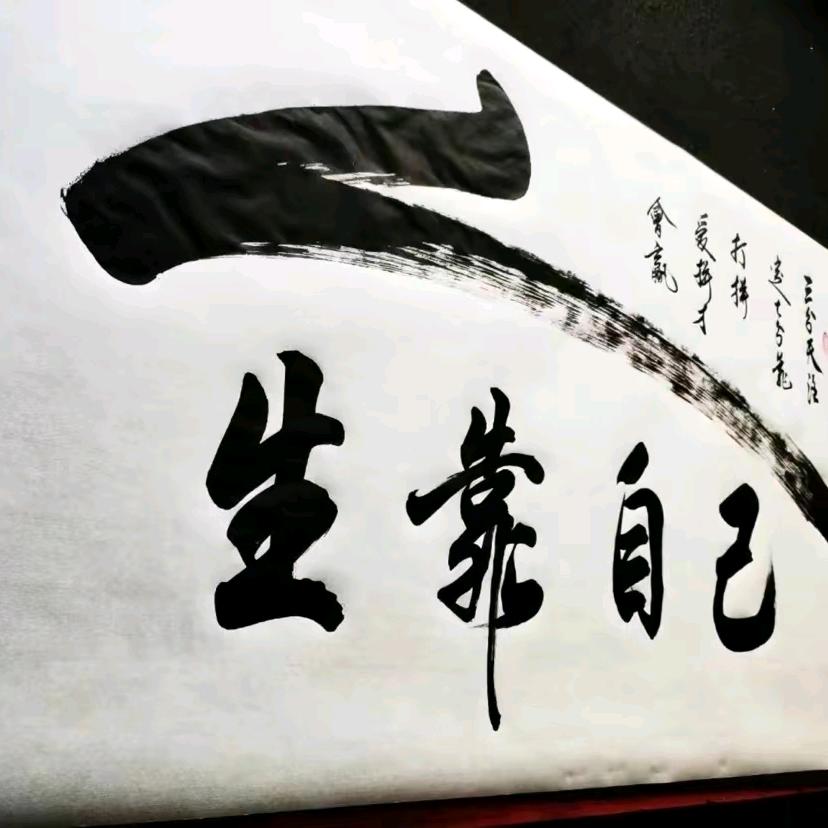 人生靠自己
三分天注
定七分靠
打拼
爱拼才
會贏